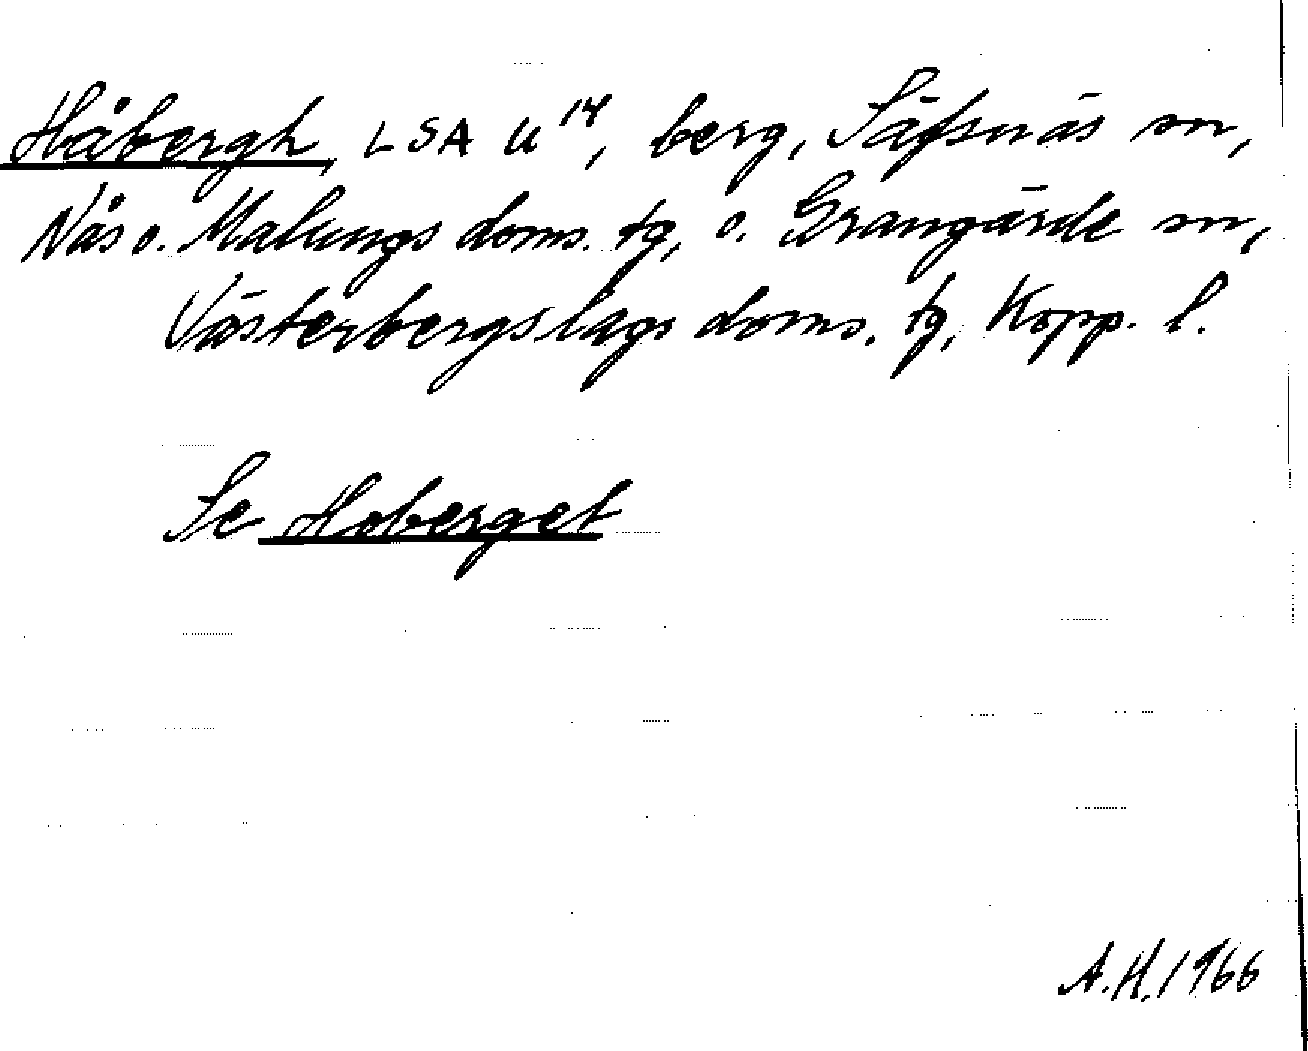 Håbergh, LSA U¹⁴, berg, Säfsnäs sn,
Nås o. Malungs doms. tg, o. Grangärde sn,
Västerbergslags doms. tg, Kopp. l.
Se Hoberget
A.H. 1966